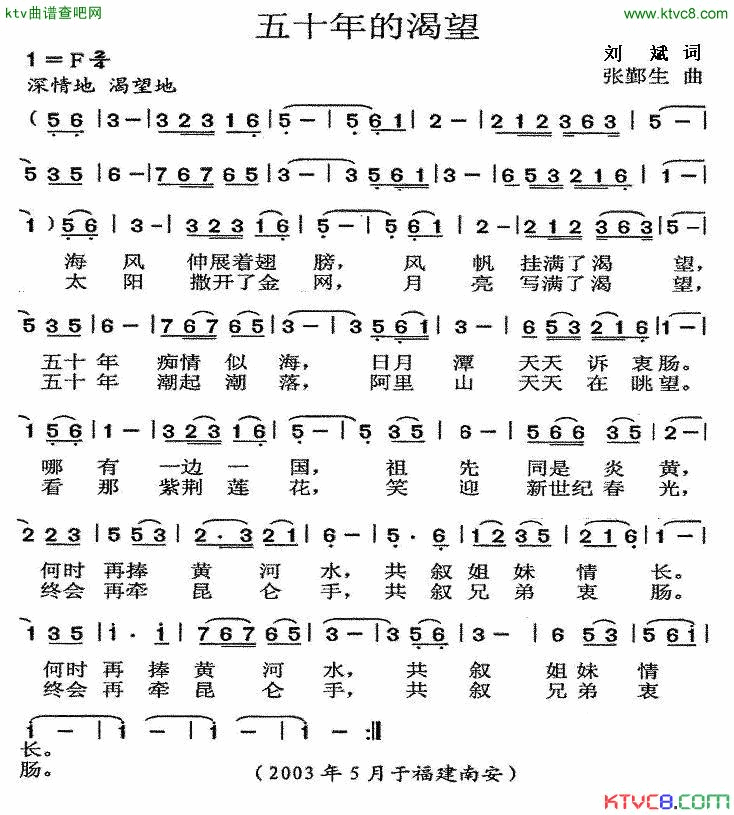 ktv曲谱查吧网
www.ktvc8.com
五十年的渴望
1=F 2/4
刘 斌 词
深情地 渴望地
张鄞生 曲
(56|3-|323 16|5-|561|2-|212 363|5-|
535|6-|76765|3-|3561|3-|653216|1-|
1)56|3-|323 16|5-|561|2-|212 363|5-|
海 风 伸展着翅 膀, 风 帆 挂满了渴 望,
太 阳 撒开了金 网, 月 亮 写满了渴 望,
535|6-|76765|3-|3561|3-|653216|1-|
五十年 痴情 似 海, 日月 潭 天天 诉 衷肠。
五十年 潮起 潮 落, 阿里 山 天天 在 眺望。
156|1-|32316|5-|535|6-|56635|5-|
哪 有 一边 一 国, 祖 先 同是 炎 黄,
看 那 紫荆 莲 花, 笑 迎 新世纪 春 光,
223|553|2·321|6-|5·6|1235|216|1-|
何时 再捧 黄 河 水, 共 叙 姐 妹 情 长。
终会 再牵 昆 仑 手, 共 叙 兄 弟 衷 肠。
135|1·1|76765|3-|356|3-|653|561|
何时 再 捧 黄 河 水, 共 叙 姐妹 情
终会 再 牵 昆 仑 手, 共 叙 兄弟 衷
1-|1-|1-|1-:||
长。
肠。
(2003年5月于福建南安)
KTVC8.com